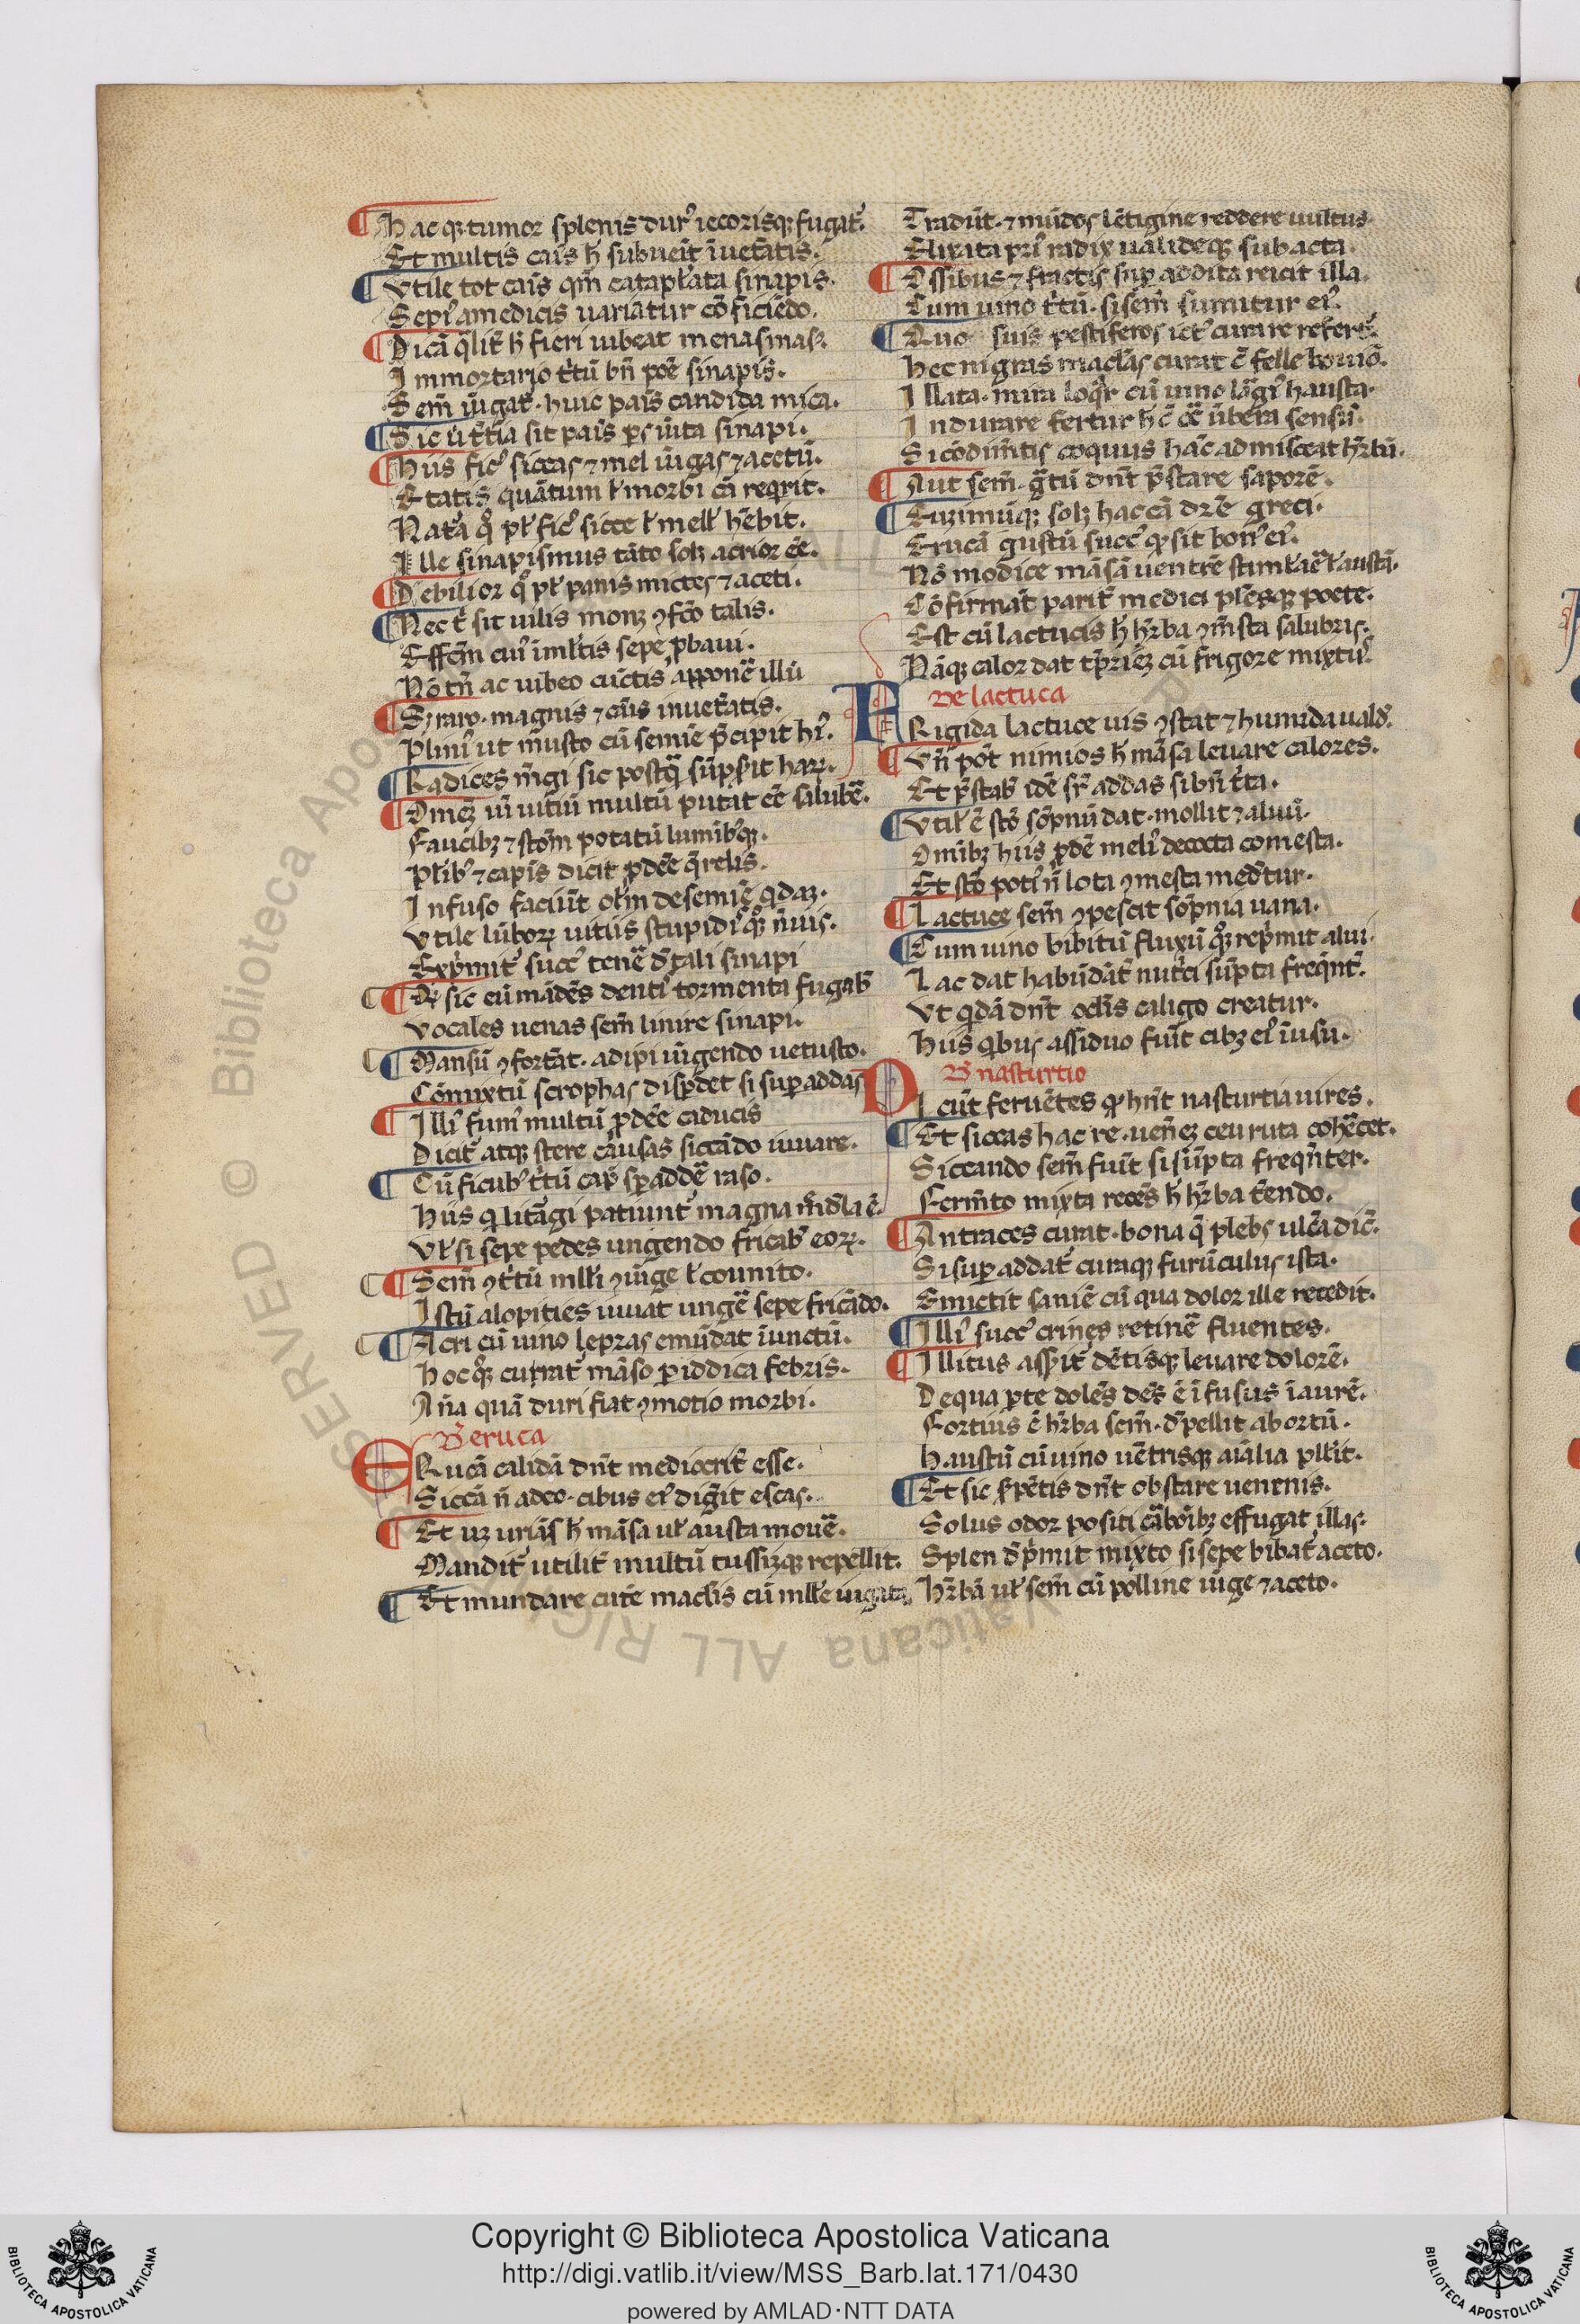 Hac qꝫ tumor splenis durꝰ iecorisqꝫ fugat᷑.
Et multis cāis h̄ subueīt īuet̄atis.
Vtile tot cāis qm̄ cataplāta sinapis.
Sepiꝰ a medicis uariātur cōficiēdo.
Dicā qͣlit̄ h̄ fieri iubeat menasinas.
Immortario t̓tū bn̄ poē sinapis.
Sem̄ iūgat᷑. huic pāis candida mica.
Sic ut t̄tia sit pāis ps iūta sinapi.
Hiis ficꝰ siccas ⁊ mel iūgas ⁊ acetū.
Etatis quātum ł morbi cā reqͥrit.
Natā qͦ plꝰ ficꝰ sicce ł mell hēbit.
Ille sinapismus tāto solꝫ acrior eē.
Debilior qͦ plꝰ panis mictes ⁊ aceti.
Nec t̄ sit uilis monꝫ ꝯfcō talis.
Effcm̄ cuiꝰ ī mltis sepe ꝓbaui.
Nō tn̄ ac iubeo cūctis apponē illū
Sꝫ raro. magnis ⁊ cāis inuet̄atis.
Pliniꝰ ut musto cū semīe p̄cipit hiꝰ.
Radices mgi sic postqͣ sūpsit haꝝ.
Omēꝫ iū iutiū multū putāt eē salubē.
Faucibꝫ ⁊ stom̄ potatū lumībꝰqꝫ.
Plibꝰ ⁊ capis dicit̄ ꝓdēē qͣrelis.
Infuso faciūt olīm de semīe qͥdaꝫ.
Vtile lūboꝝ uitiis stupidiꝰqꝫ n̄uis.
Exp̄mit᷑ succꝰ tenē d̄ tali sinapi
Qͥ sic eū mādēs denti tormenta fugab̄
Vocales uenas sem̄ linire sinapi.
Mansū ꝯfortāt. adipi iūgendo uetusto.
Cōmixtū scrophas disꝑdet si suꝑ addas
Illiꝰ fumꝰ multū ꝓdēē caducis
Dicit᷑ atqꝫ stere cāusas siccādo iuuare.
Cū ficubꝰ t̓tū capͥ sꝑ addē raso.
Hiis qͥ litāgi patiunt᷑ magna md̄la ē.
Vł si sepe pedes ungendo fricab̄ eoꝝ.
Sem̄ ꝯt̓tū mlli ꝯiūge ł counito.
Istū alopities iuuat ungē sepe fricādo.
Acri cū uino lepras emūdat īunctū.
Hoc qͦꝫ curat᷑ māso ꝑiodica febris.
An̄a quā duri fiat ꝯmotio morbi.
De eruca
ERucā calidā dn̄t mediocrit̄ esse.
Siccā n̄ adeo. cibus eiꝰ digīt escas.
Et uꝫ uriās h̄ māsa uł austa mouē.
Mandit᷑ utilit̄ multū tussiꝫqꝫ repellit.
Et mundare cutē maclis cū mlle iūgata
Tradūt. ⁊ mūdos lētigine reddere uultus.
Elixata priꝰ radix ualideqꝫ sub acta.
Ossibus ⁊ fractis suꝑ addita reicit illa.
Cum uino t̓tū. si sem̄ sumitur eiꝰ.
Quo suis pestiferos ictꝰ curare refert᷑.
Hec nigras maclas curat c̄ felle bouīo.
Illata. mira loqͥr cū uino lāgiꝰ hausta.
Indurare fertur h̄ c̄ cē ūbera sensū.
Si cōdimtis coquus hāc admisceat hr̄bū.
Aut sem̄. gͣtū dn̄t p̄stare saporē.
Euzimūqꝫ solꝫ hac cā dr̄e greci.
Erucā gustū succꝰ qͥ sit bonꝰ eiꝰ.
Nō modice māsā uentrē stimlāē ł austā.
Cōfirmāt parit̄ medici plēsqꝫ poete.
Est cū lactucis h̄ hr̄ba ꝯmsta salubris.
Nāqꝫ calor dat tꝑiēꝫ cū frigore mixtꝰ.
De lactuca
FRigida lactuce uis ꝯstat ⁊ humida ualdꝰ.
Vn̄ pōt nimios h̄ māsa leuare calores.
Et p̄stab̄ idē sr̄ addas sibi n̄ t̓ta.
Vtilꝰ ē stō sōpnū dat. mollit ⁊ aluū.
Omībꝫ hiis ꝓdē meliꝰ decocta comesta.
Et stō potiꝰ n̄ lota ꝯmesta med̄tur.
Lactuce sem̄ ꝯpescit sōpnia uana.
Cum uino bibitū fluxū qͦꝫ rep̄mit alui.
Lac dat habūdāt̄ nutͥci sūpta freqͣnt̄.
Vt qͥdā dn̄t oclis caligo creatur.
Hiis qͥbus assiduo fuīt cibꝫ eiꝰ ī usu.
De nasturtio
DIcūt feruētes qͥ hn̄t nasturtia uires.
Et siccas hac re. uen̄eꝫ ceu ruta cohēcet.
Siccando sem̄ fuīt si sūpta freqn̄ter.
Ferm̄to mixta recēs h̄ hr̄ba t̄endo.
Antraces curat. bona qͣ plebs ulc̄a dic̄.
Si suꝑ addat᷑ curaqꝫ furūculus ista.
Emictit saniē cū qua dolor ille recedit.
Illiꝰ succꝰ crines retinē fluentes.
Illitus assꝑit᷑ dētisqꝫ leuare dolorē.
De qua ꝑte dolēs dēs ē īfusus ī aurē.
Fortius ē hr̄ba sem̄. d̄pellit abortū.
Haustū cū uino uētrisqꝫ aīalia pllit.
Et sic sꝑētis dn̄t obstare uenenis.
Solus odor positi cābōibꝫ effugat illas.
Splen d̄p̄mit mixto si sepe bibat᷑ aceto.
Hr̄bā uł sem̄ cū polline iūge ⁊ aceto.
Copyright © Biblioteca Apostolica Vaticana
http://digi.vatlib.it/view/MSS_Barb.lat.171/0430
powered by AMLAD·NTT DATA
BIBLIOTECA APOSTOLICA VATICANA
BIBLIOTECA APOSTOLICA VATICANA